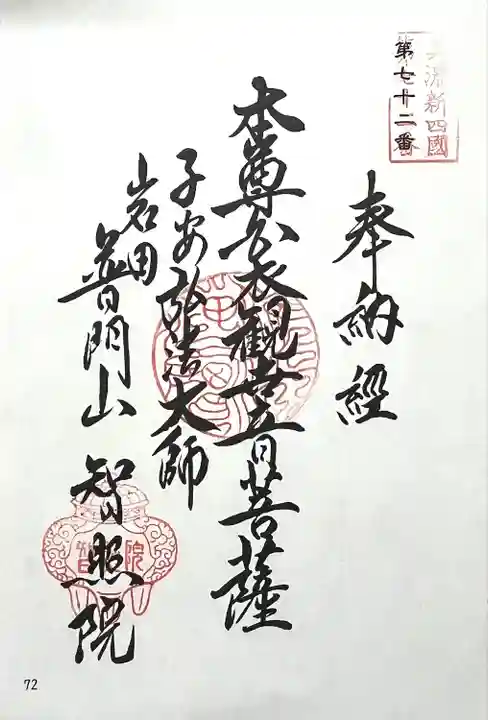 新四國
第七十二番
奉納経
本尊白衣観世音菩薩
子安弘法大師
岩田
普門山 智照院
智
院
72